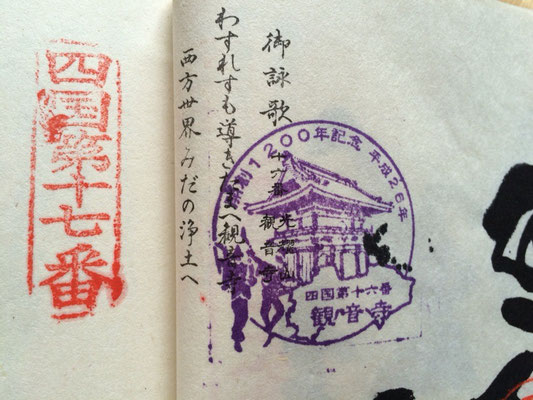 御詠歌
十六番 光耀山
観音寺
わすれずも導きたまへ観音寺
西方世界みだの浄土へ
創1200年記念 平成26年
四国第十六番
観音寺
四国第十七番